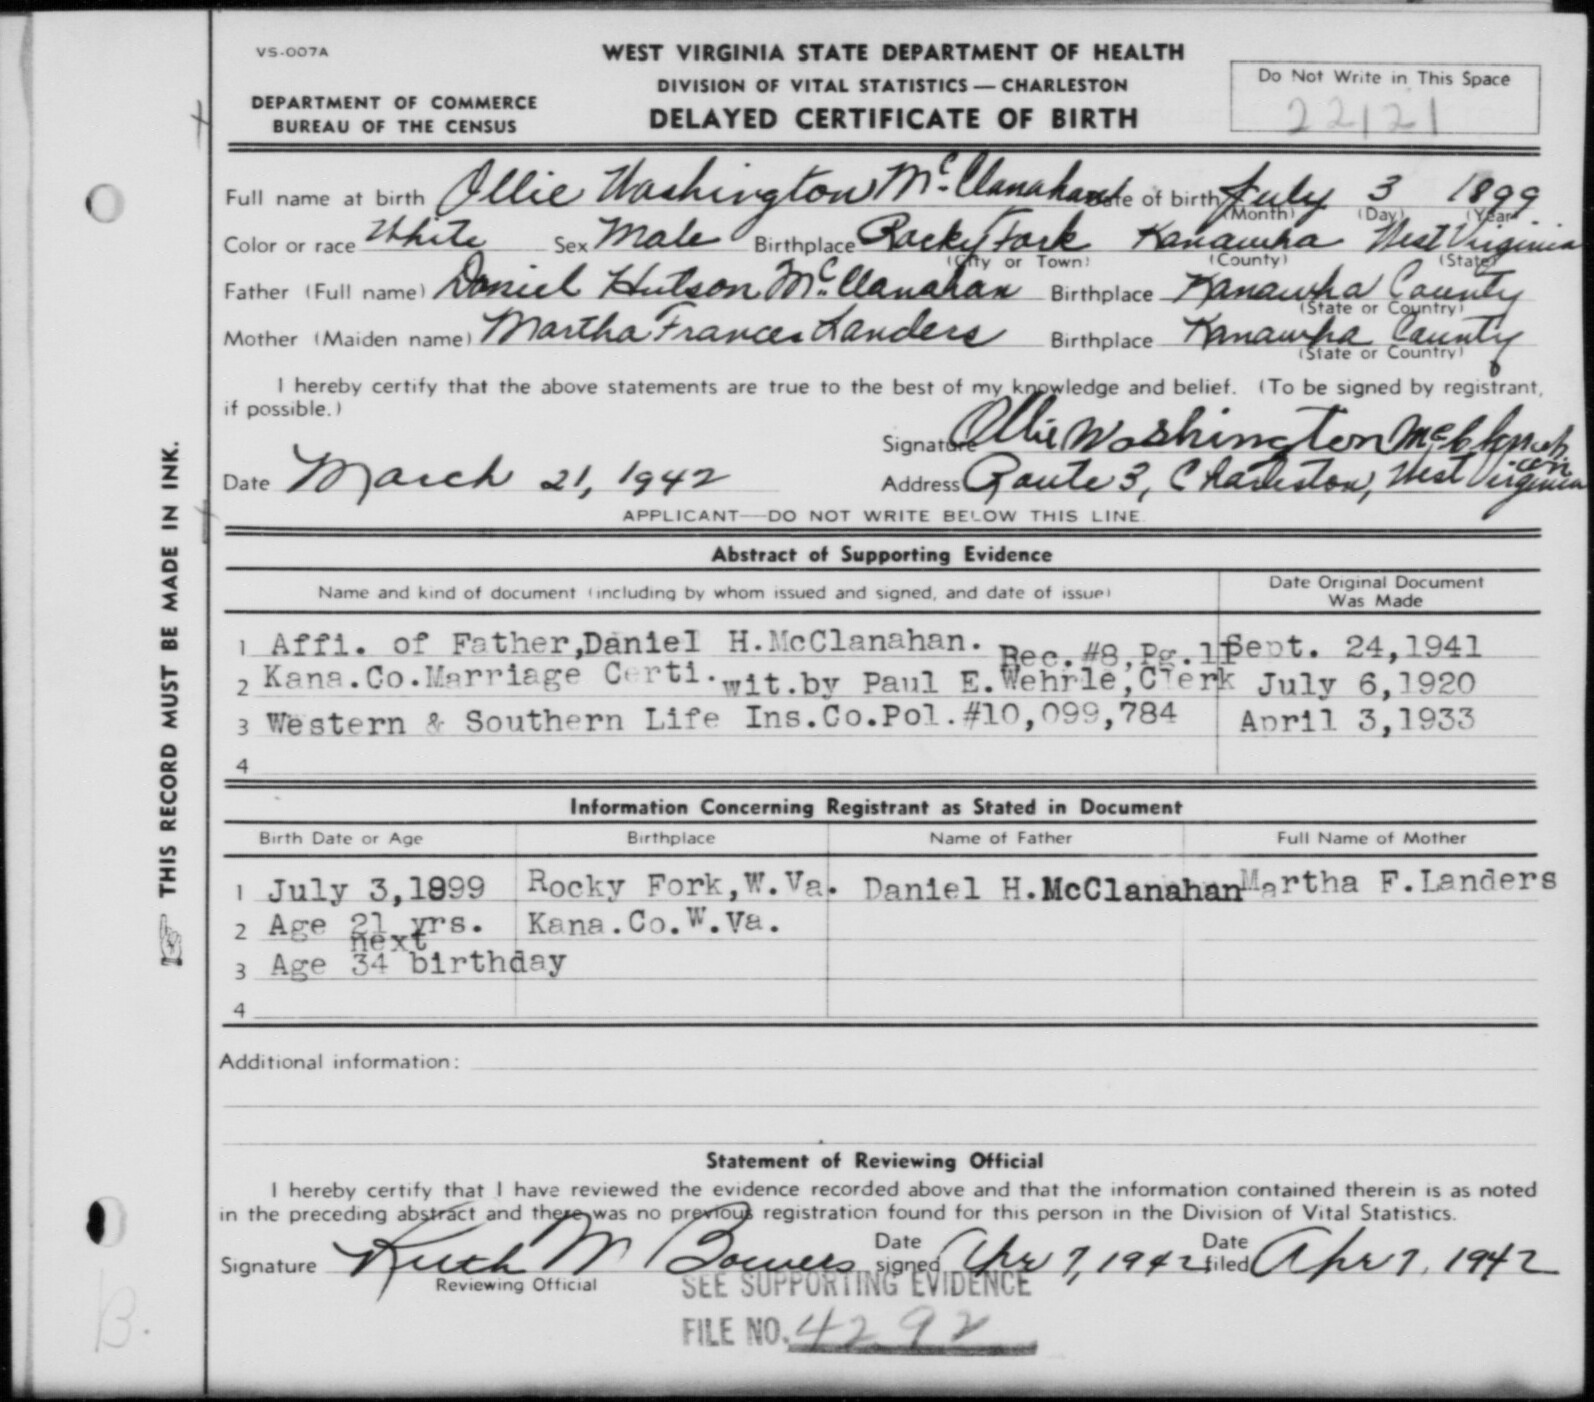 VS-007A
WEST VIRGINIA STATE DEPARTMENT OF HEALTH
DIVISION OF VITAL STATISTICS — CHARLESTON
DELAYED CERTIFICATE OF BIRTH
DEPARTMENT OF COMMERCE
BUREAU OF THE CENSUS
Do Not Write in This Space
22121
Full name at birth Ollie Washington McClanahan Date of birth July 3 1899
(Month) (Day) (Year)
Color or race White Sex Male Birthplace Rocky Fork Kanawha West Virginia
(City or Town) (County) (State)
Father (Full name) Daniel Hutson McClanahan Birthplace Kanawha County
(State or Country)
Mother (Maiden name) Martha Frances Landers Birthplace Kanawha County
(State or Country)
I hereby certify that the above statements are true to the best of my knowledge and belief. (To be signed by registrant,
if possible.)
Signature Ollie Washington McClanahan
Date March 21, 1942 Address Route 3, Charleston, West Virginia
APPLICANT—DO NOT WRITE BELOW THIS LINE.
Abstract of Supporting Evidence
Name and kind of document (including by whom issued and signed, and date of issue) Date Original Document
Was Made
1 Affi. of Father,Daniel H.McClanahan. Sept. 24,1941
Rec.#8,Pg.11
2 Kana.Co.Marriage Certi.wit.by Paul E.Wehrle,Clerk July 6,1920
3 Western & Southern Life Ins.Co.Pol.#10,099,784 April 3,1933
4
Information Concerning Registrant as Stated in Document
Birth Date or Age Birthplace Name of Father Full Name of Mother
1 July 3,1899 Rocky Fork,W.Va. Daniel H.McClanahan Martha F.Landers
2 Age 21 yrs. Kana.Co.W.Va.
next
3 Age 34 birthday
4
Additional information:
Statement of Reviewing Official
I hereby certify that I have reviewed the evidence recorded above and that the information contained therein is as noted
in the preceding abstract and there was no previous registration found for this person in the Division of Vital Statistics.
Signature Ruth M Bowers Date signed Apr 7, 1942 Date filed Apr 7, 1942
Reviewing Official
SEE SUPPORTING EVIDENCE
FILE NO. 4292
THIS RECORD MUST BE MADE IN INK.
B.